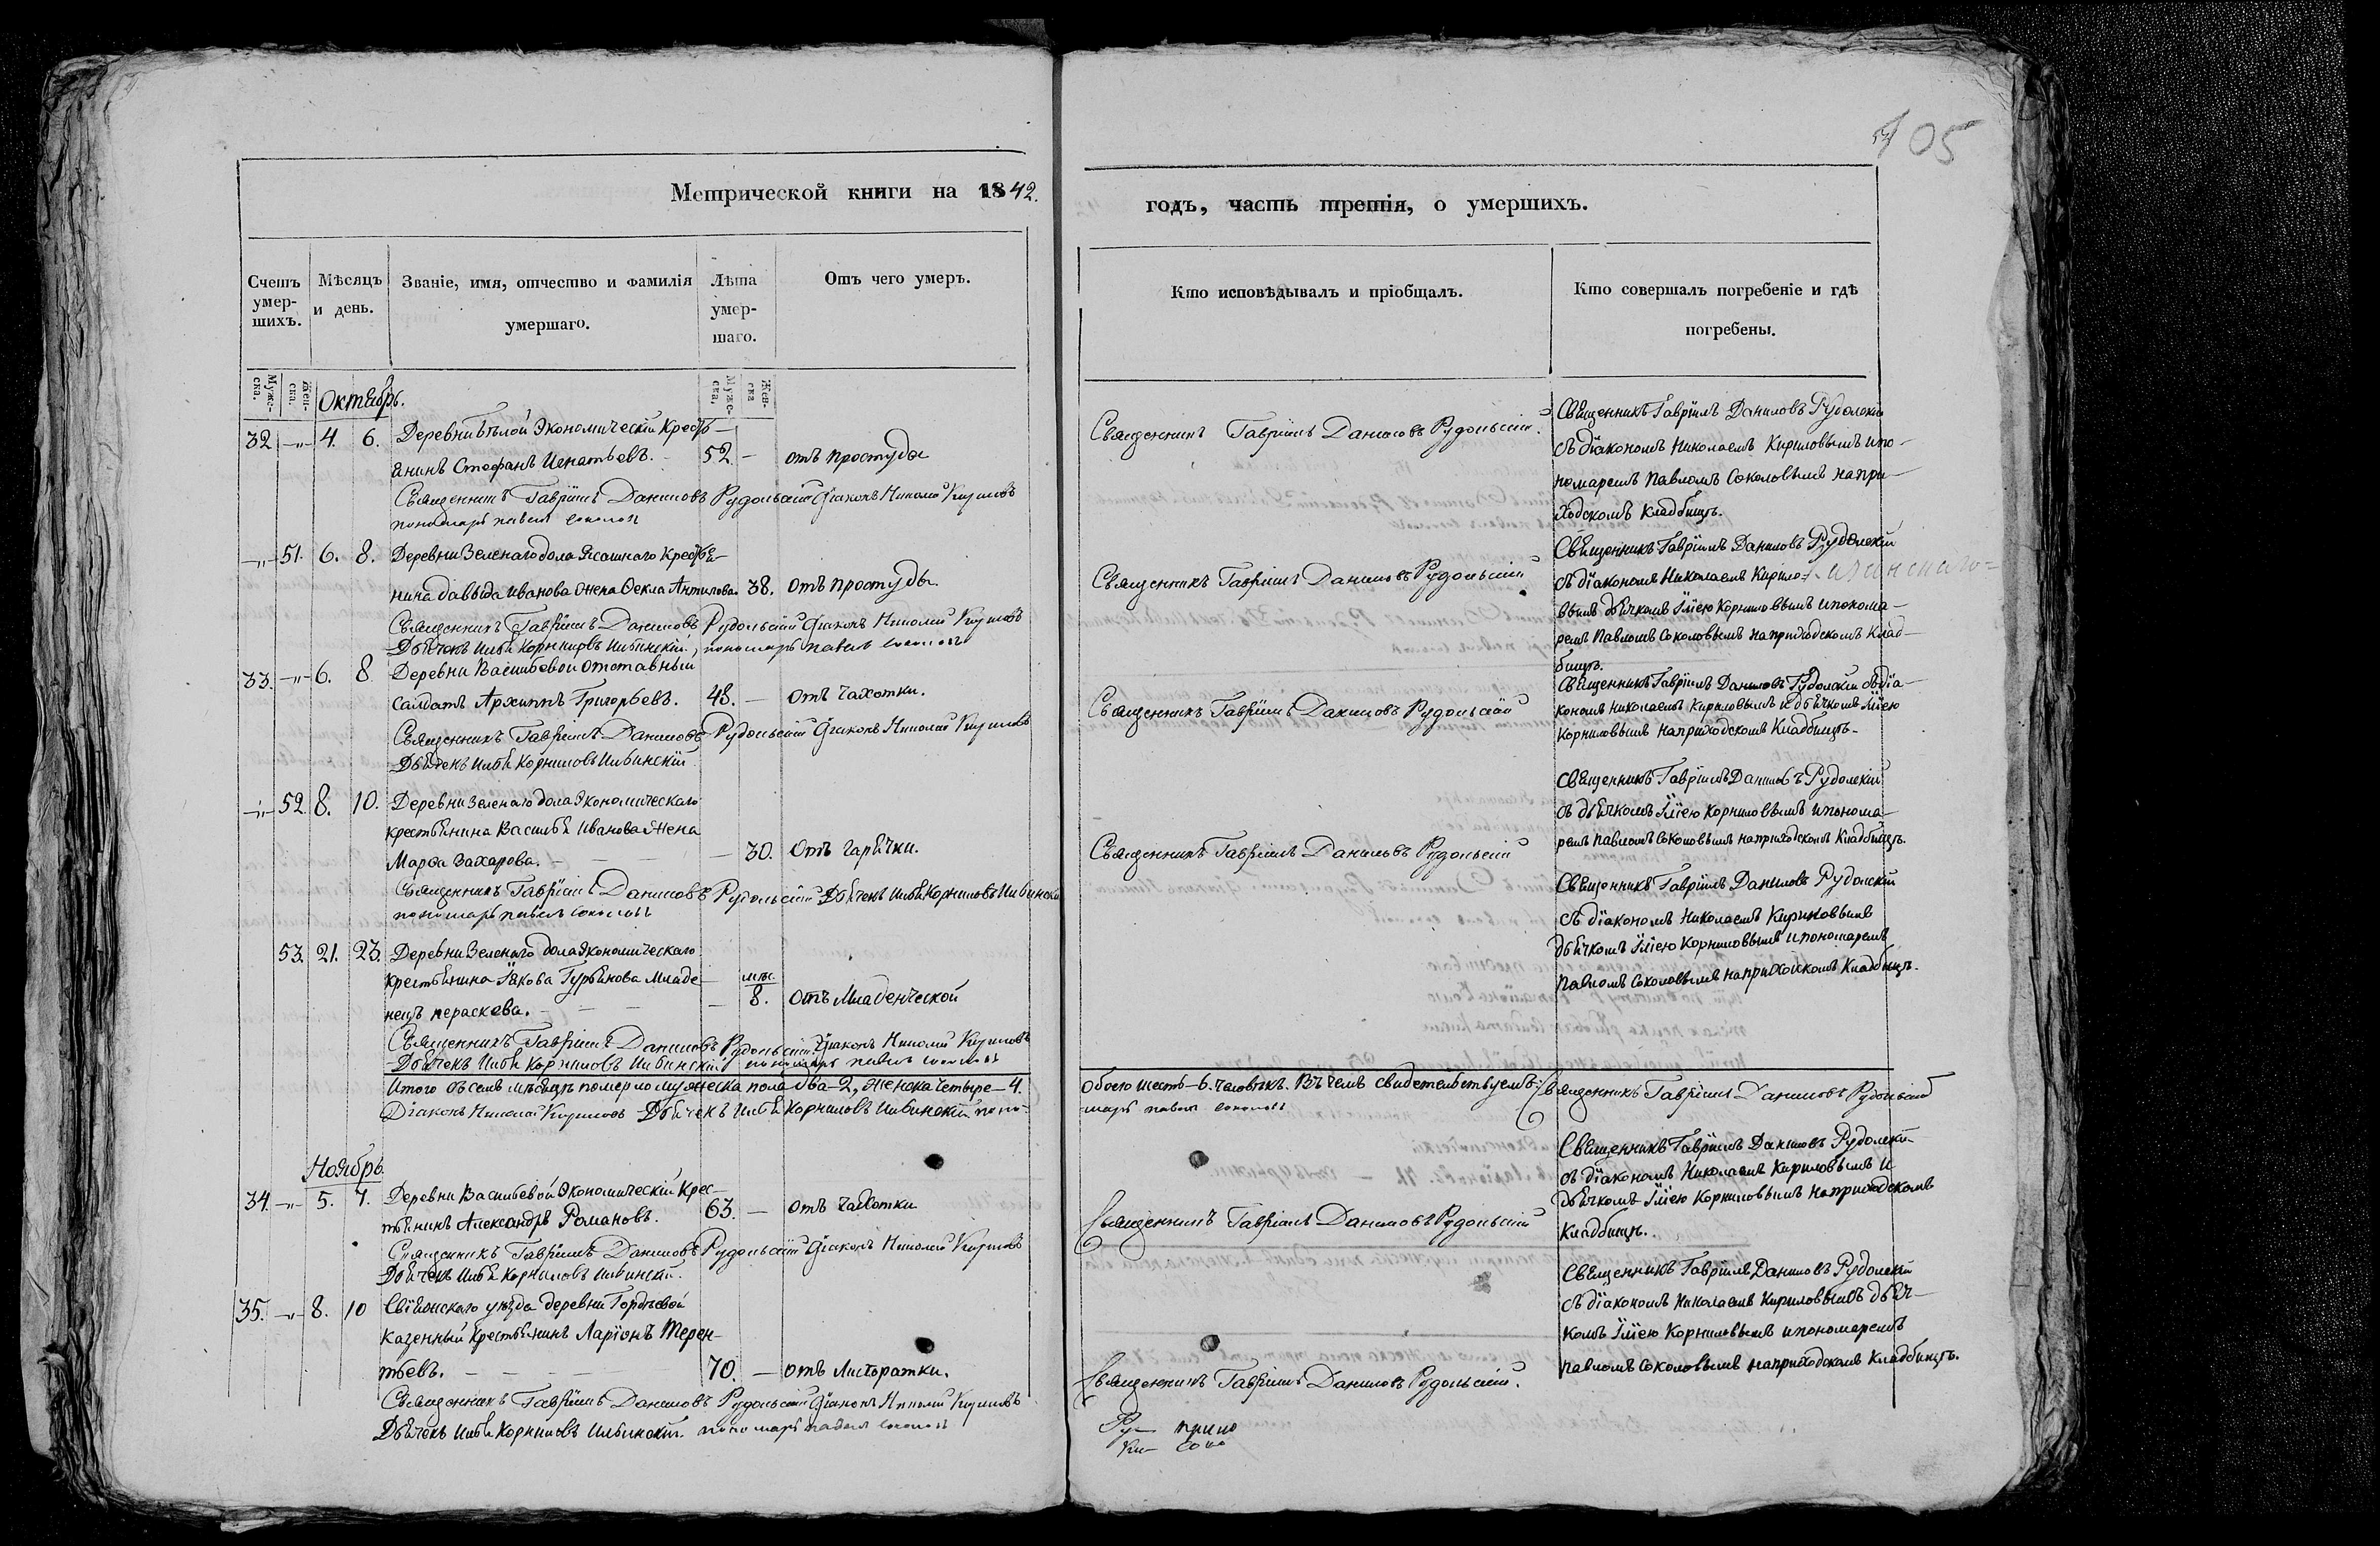 105
Метрической книги на 1842.
годъ, часть третія, о умершихъ.
Счетъ умер-шихъ.
Мѣсяцъ и день.
Званіе, имя, отчество и фамилія умершаго.
Лѣта умер-шаго.
Отъ чего умеръ.
Кто исповѣдывалъ и пріобщалъ.
Кто совершалъ погребеніе и гдѣ погребены.
Муже-ска. Жен-ска.
Муже-ска. Жен-ска
Октябрь.
32 -„- 4. 6. Деревни Бѣлой Экономическій Кресть-
янинъ Стефанъ Игнатьевъ. 52. - отъ простуды
Священникъ Гавріилъ Даниловъ Рудольскій Діаконъ Николай Кириловъ
пономарь павелъ соколовъ
Священникъ Гавріилъ Даниловъ Рудольскій.
Священникъ Гавріилъ Даниловъ Рудолскій
съ діакономъ Николаемъ Кириловымъ и по-
номаремъ Павломъ Соколовымъ на при-
ходскомъ кладбищѣ.
-„- 51. 6. 8. Деревни Зеленаго дола Ясашнаго Крестья-
нина давыда иванова жена Фекла Антипова. 38. Отъ простуды.
Священникъ Гавріилъ Даниловъ Рудольскій Діаконъ Николай Кириловъ
Дьячекъ Илья Корниловъ Ильинскій, пономарь павелъ соколовъ
Священникъ Гавріилъ Даниловъ Рудольскій
Священникъ Гавріилъ Даниловъ Рудолскій
съ діакономъ Николаемъ Кирило-
вымъ дьячкомъ Иліею Корниловымъ и понома-
ремъ Павломъ Соколовымъ на приходскомъ Клад-
бищѣ.
33. -„- 6. 8 Деревни Васильевой отставный
салдатъ Архиппъ Григорьевъ. 48. - Отъ чахотки.
Священникъ Гавріилъ Даниловъ Рудольскій Діаконъ Николай Кириловъ
Дьячекъ Илья Корниловъ Ильинскій
Священникъ Гавріилъ Даниловъ Рудольскій
Священникъ Гавріилъ Даниловъ Рудолскій съ діа-
кономъ Николаемъ Кириловымъ и дьячкомъ Иліею
Корниловымъ на приходскомъ Кладбищѣ.
-„- 52 8. 10. Деревни Зеленаго дола Экономическаго
крестьянина Василья Иванова жена
Марфа Захарова. - 30. Отъ гарячки.
Священникъ Гавріилъ Даниловъ Рудольскій Дьячекъ Илья Корниловъ Ильинскій
пономарь павелъ соколовъ
Священникъ Гавріилъ Даниловъ Рудольскій
Священникъ Гавріилъ Даниловъ Рудолскій
съ дьячкомъ Иліею Корниловымъ и понома-
ремъ Павломъ Соколовымъ на приходскомъ Кладбищѣ.
53. 21. 23. Деревни Зеленаго дола Экономическаго
крестьянина Іякова Гурьянова младе-
нецъ пераскева. - 8. Отъ Младенческой
Священникъ Гавріилъ Даниловъ Рудольскій Діаконъ Николай Кириловъ
Дьячекъ Илья Корниловъ Ильинскій пономарь павелъ соколовъ
Священникъ Гавріилъ Даниловъ Рудолскій
съ діакономъ Николаемъ Кириловымъ
дьячкомъ Иліею Корниловымъ и пономаремъ
Павломъ Соколовымъ на приходскомъ Кладбищѣ.
Итого въ семъ мѣсяцѣ померло мужеска пола два-2, женска четыре-4.
обоего шесть-6. человѣкъ. Въ чемъ свидетельствуемъ: Священникъ Гавріилъ Даниловъ Рудольскій
Діаконъ Николай Кириловъ Дьячекъ Илья Корниловъ Ильинскій поно-
марь павелъ соколовъ
Ноябрь
34. -„- 5. 7. Деревни Васильевой Экономическій Крес-
тьянинъ Александръ Романовъ. 63. - отъ чахотки
Священникъ Гавріилъ Даниловъ Рудольскій Діаконъ Николай Кириловъ
Дьячекъ Илья Корниловъ Ильинскій.
Священникъ Гавріилъ Даниловъ Рудольскій
Священникъ Гавріилъ Даниловъ Рудолскій
съ діакономъ Николаемъ Кириловымъ и
дьячкомъ Иліею Корниловымъ на приходскомъ
Кладбищѣ.
35. -„- 8. 10 Свіяжскаго уѣзда деревни Гордѣевой
казенный крестьянинъ Ларіонъ Терен-
тьевъ. 70. - отъ Лихоратки.
Священникъ Гавріилъ Даниловъ Рудольскій Діаконъ Николай Кириловъ
Дьячекъ Илья Корниловъ Ильинскій. пономарь павелъ соколовъ
Священникъ Гавріилъ Даниловъ Рудольскій.
Священникъ Гавріилъ Даниловъ Рудолскій
съ діакономъ Николаемъ Кириловымъ дьяч-
комъ Иліею Корниловымъ и пономаремъ
павломъ Соколовымъ на приходскомъ Кладбищѣ.